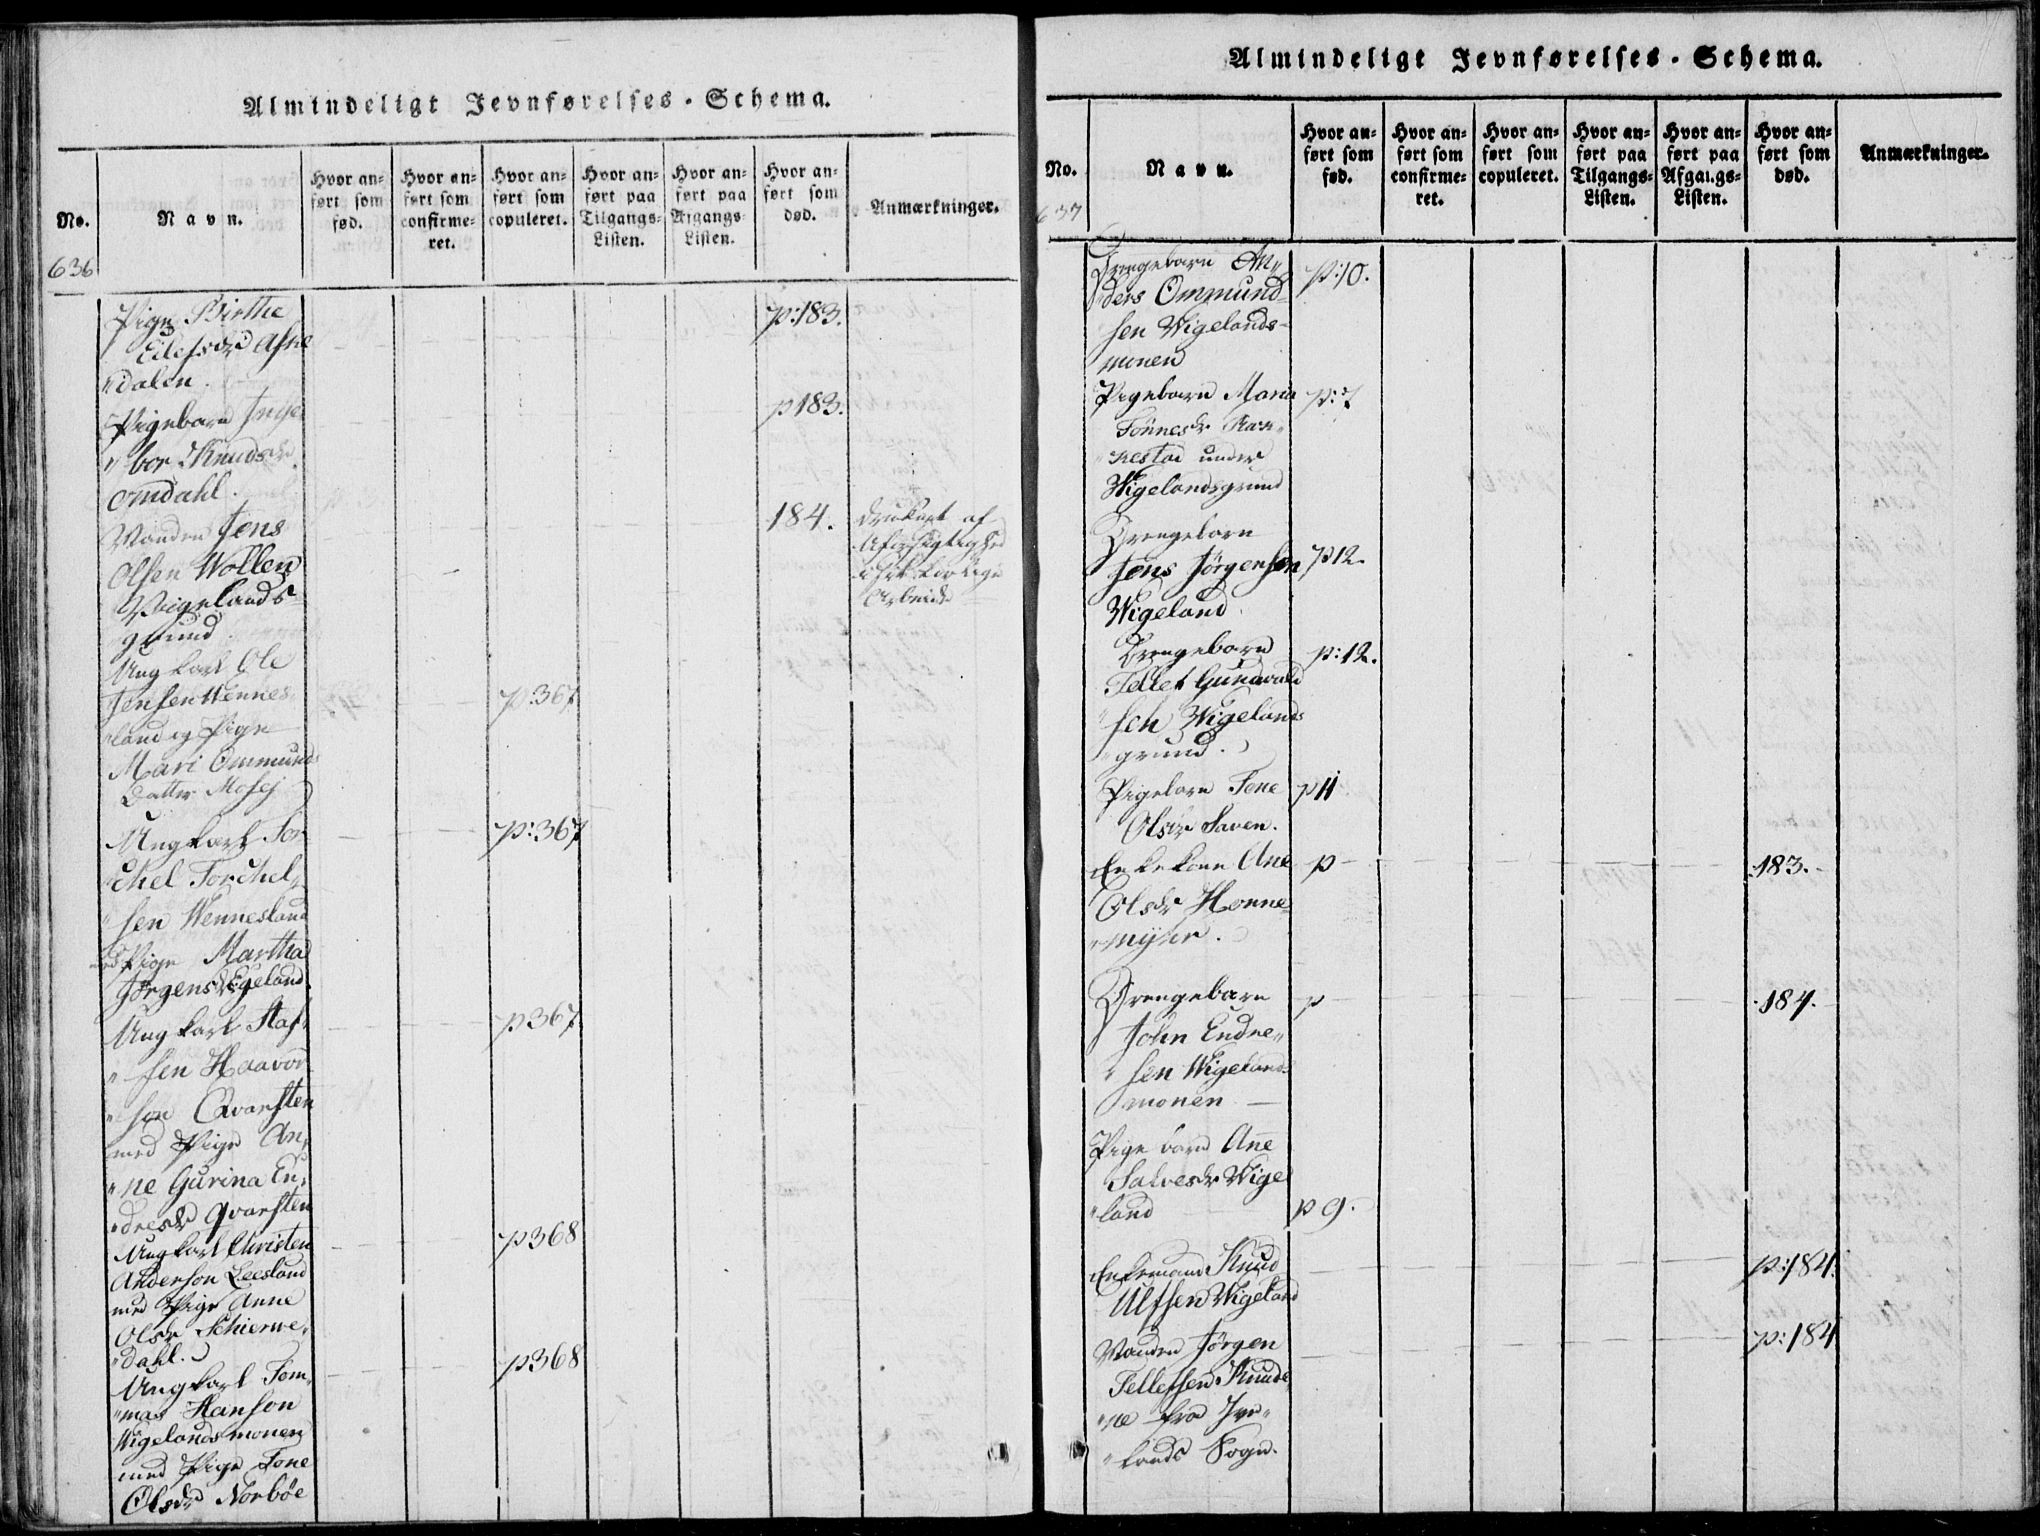 Almindeligt Jevnførelses-Schema.
No.
Navn.
Hvor an-
ført som
fød.
Hvor an-
ført som
confirme-
ret.
Hvor an-
ført som
copuleret.
Hvor an-
ført paa
Tilgangs-
Listen.
Hvor an-
ført paa
Afgangs-
Listen.
Hvor an-
ført som
død.
Anmærkninger.
636
Pige Birthe p:183.
Eilefsdr Asne
"dalen.
Pigebarn Inge p183.
"bor Knudsdr
Omdahl.
Manden Jens 184. druknet af
Olsen Wollen Uforsigtighed
Vigelands-
grund Arbeide
Ung karl Ole
Jensen Wennes p.367
"land og Pige
Mari Ommunds
Datter Mosej
Ungkarl Tor p:367
"chel Torchel,,
"sen Wennesland
med Pige Martha
Jørgensdr Egeland.
Ung karl Staf, p367.
"sen Haavor
"sen Qvarsten
med Pige An,,
"ne Gurina En,
"dresdr Qvarsten
Ungkarl Christen p368
Anderson Leesland
med Pige Anne
Olsdr Schierve,
"dahl.
Ungkarl Tom, p368
"mas Hanson
Wigelandsmonen
med Pige Tone
Olsdr Norbøe
Almindeligt Jevnførelses-Schema.
No.
Navn.
Hvor an-
ført som
fød.
Hvor an-
ført som
confirme-
ret.
Hvor an-
ført som
copuleret.
Hvor an-
ført paa
Tilgangs-
Listen.
Hvor an-
ført paa
Afgangs-
Listen.
Hvor an-
ført som
død.
Anmærkninger.
637
Drengebarn An, p:10.
"ders Ommund-
sen Wigelands-
monen
Pigebarn Maria p:7
Tønnesdr Ran,,
"kestad under
Wigelandsgrund
Drengebarn
Jens Jørgensen p12.
Wigeland
Drengebarn p:12.
Tellef Gundvald
"sen Wigelands
"grund.
Pigebarn Tone p11
Olsdr Saven.
Enkekone Ane p 183.
Olsdr Honne-
"myhr.
Drengebarn p 184.
John Endre,,
"sen Wigelands
monen
Pige barn Ane
Salvesdr Wige
"land p 9.
Enkemand Knud p:184.
Ulfsen Wigeland
Manden Jørgen p:184
Tellefsen Knude
"ne fra Ive,,
"lands Sogn.